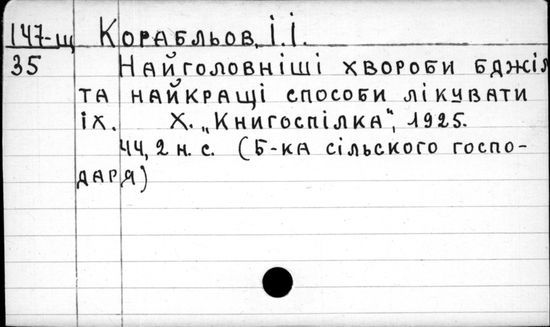 147-щ Корабльов, І.І.
35 Найголовніші хвороби бджіл
та найкращі способи лікувати
їх. Х. „Книгоспілка", 1925.
44, 2 н. с. (Б-ка сільского госпо-
даря)